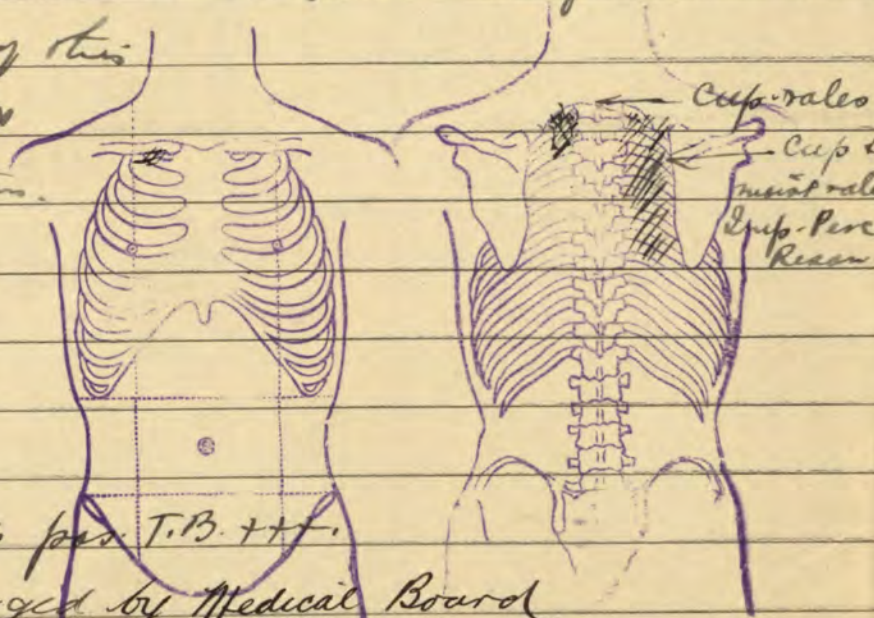 of this
Crep-rales
Crep &
moist rales
Imp-Perc
Reson
pos. T.B. +++.
ged by Medical Board